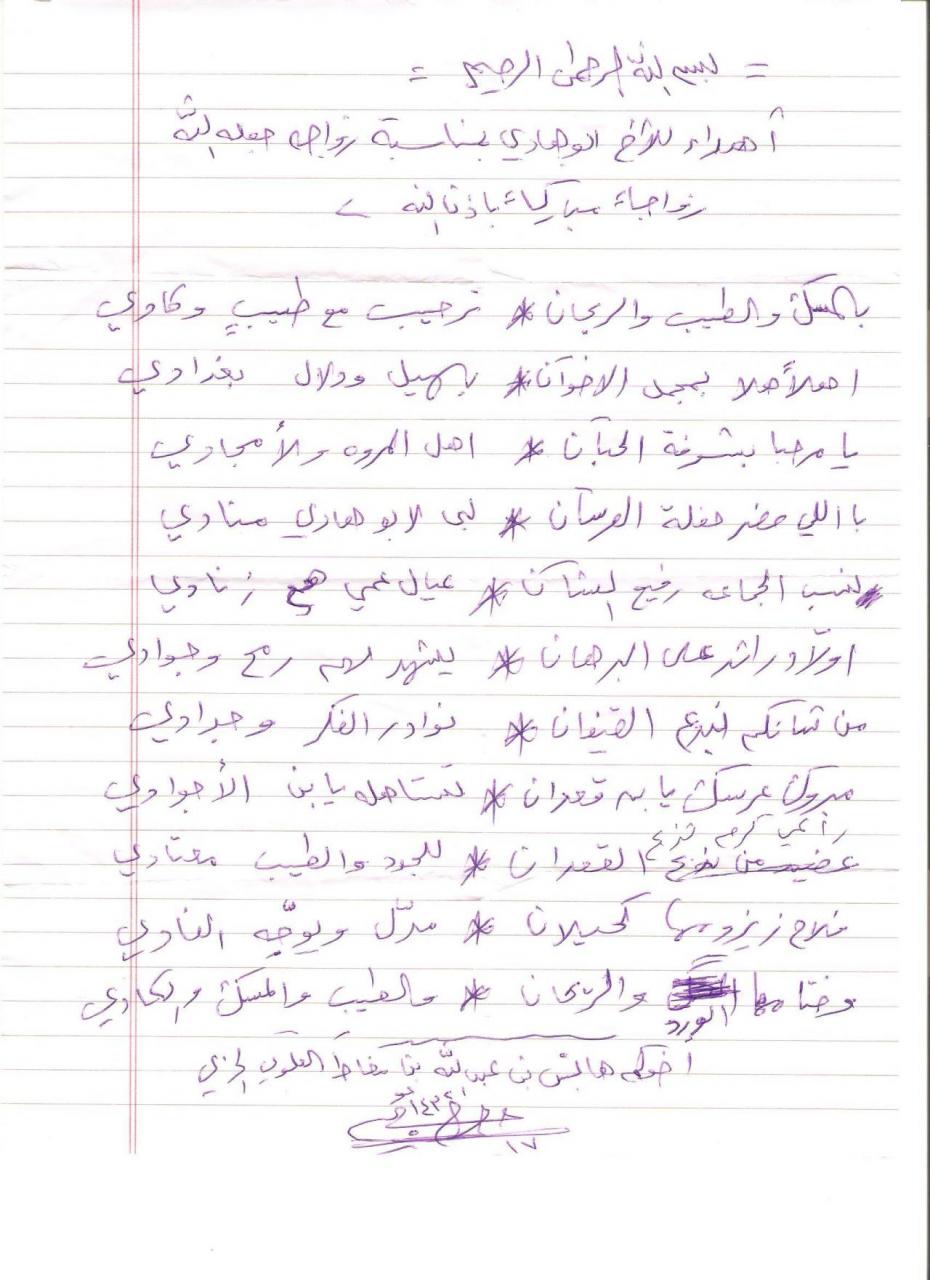 = بسم الله الرحمن الرحيم =
أهداء للأخ ابوهادي بمناسبة زواجه جعله الله
زواجاً مباركاً باذن الله
بالمسك والطيب والريحان * ترحيب مع طيبٍ وكاوي
اهلاً هلا بمجمل الاخوان * بهيل ودلال بغدادي
يا مرحبا بشوفة الخبان * اهل المروه والأمجادي
يا اللي حضر حفلة العرسان * لبى لابو هادي منادي
رفيع الشان * عيال عمي زنادي
اولاد راشد على البرهان * يشهد لهم رمح وجوادي
من شانكم نبدع القيفان * نوادر الفكر وجدادي
مبروك عرسك يا بن قعدان * تستاهله يابن الأجوادي
راعي كرم
القعدان * للجود والطيب معتادي
كحيلان * مدلّل ويوجّه الغادي
وختامها الورد والريحان * والطيب والمسك والكادي
أخوكم هايس بن عبدالله بن
١٤٣٤
١٧